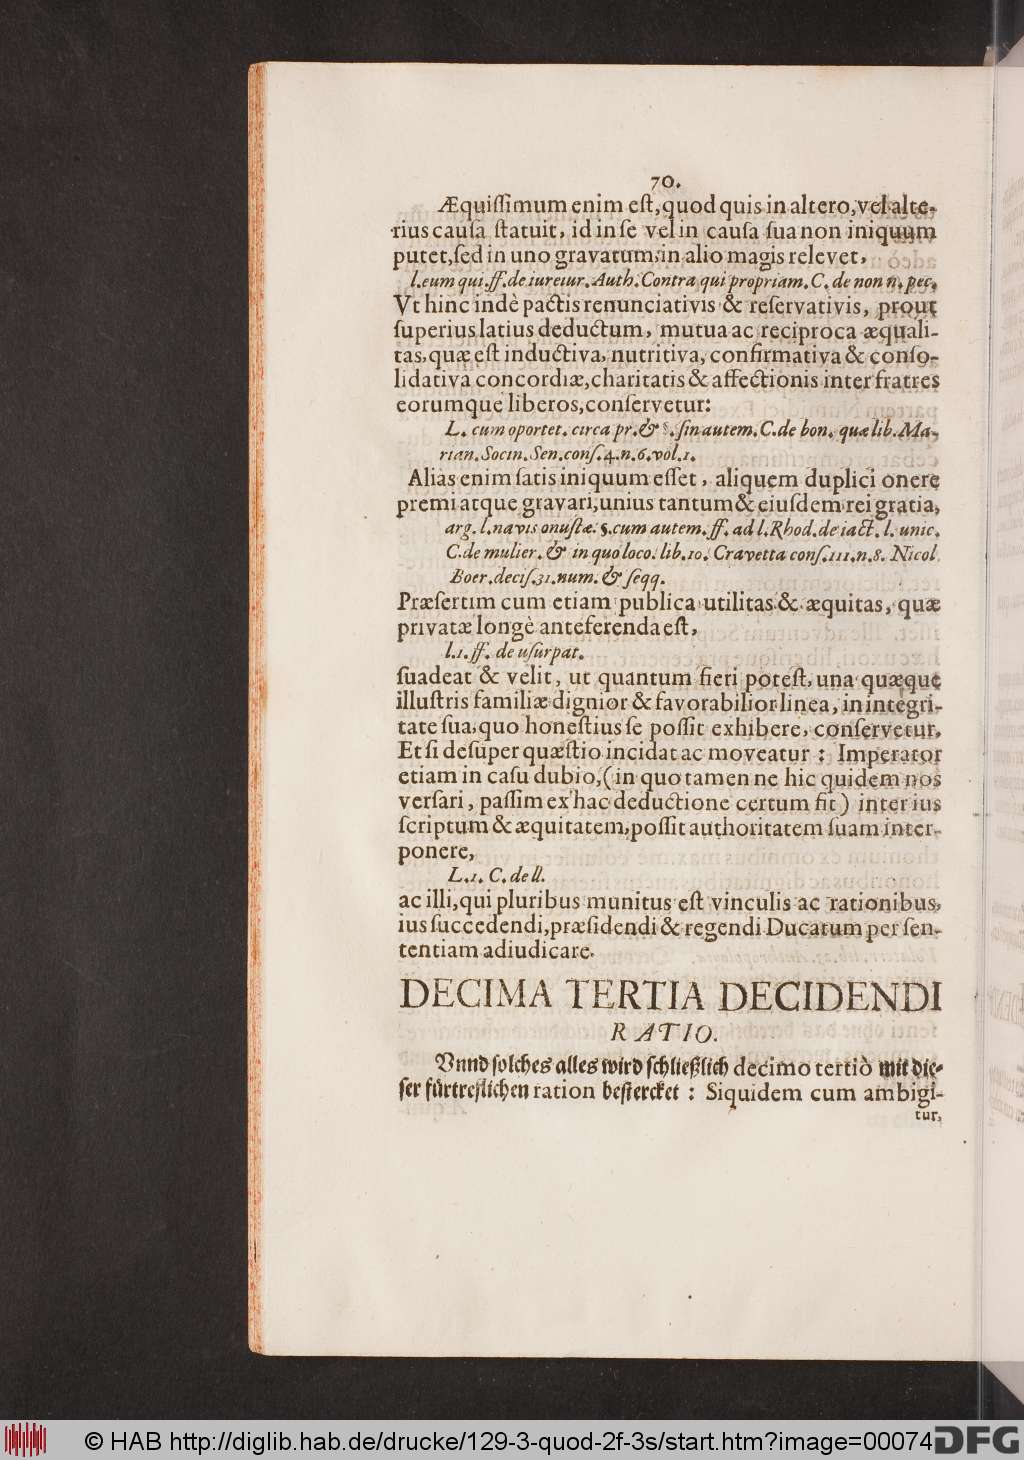 70.
Æquiſſimum enim eſt, quod quis in altero, vel alte-
rius cauſa ſtatuit, id in ſe vel in cauſa ſua non iniquum
putet, ſed in uno gravatum, in alio magis relevet,
l. eum qui. ff. de iureiur. Auth. Contra qui propriam. C. de non ñ. pec.
Vt hinc indè pactis renunciativis & reſervativis, prout
ſuperius latius deductum, mutua ac reciproca æquali-
tas, quæ eſt inductiva, nutritiva, confirmativa & conſo-
lidativa concordiæ, charitatis & affectionis inter fratres
eorumque liberos, conſervetur:
L. cum oportet. circa pr. & §. ſin autem. C. de bon. quæ lib. Ma-
rian. Socin. Sen. conſ. 4. n. 6. vol. 1.
Alias enim ſatis iniquum eſſet, aliquem duplici onere
premi atque gravari, unius tantum & eiuſdem rei gratia,
arg. l. navis onuſtæ. §. cum autem. ff. ad l. Rhod. de iact. l. unic.
C. de mulier. & in quo loco. lib. 10. Cravetta conſ. 111. n. 8. Nicol
Boer. deciſ. 31. num. & ſeqq.
Præſertim cum etiam publica utilitas & æquitas, quæ
privatæ longè anteferenda eſt,
l. 1. ff. de uſurpat.
ſuadeat & velit, ut quantum fieri poteſt, una quæque
illuſtris familiæ dignior & favorabilior linea, in integri-
tate ſua, quo honeſtius ſe poſſit exhibere, conſervetur,
Et ſi deſuper quæſtio incidat ac moveatur : Imperator
etiam in caſu dubio, (in quo tamen ne hic quidem nos
verſari, paſſim ex hac deductione certum fit) inter ius
ſcriptum & æquitatem, poſſit authoritatem ſuam inter-
ponere,
L. 1. C. de ll.
ac illi, qui pluribus munitus eſt vinculis ac rationibus,
ius ſuccedendi, præſidendi & regendi Ducatum per ſen-
tentiam adiudicare.
DECIMA TERTIA DECIDENDI
RATIO.
Vnnd ſolches alles wird ſchließlich decimo tertiò mit die-
ſer fürtreflichen ration beſtercket : Siquidem cum ambigi-
tur,
© HAB http://diglib.hab.de/drucke/129-3-quod-2f-3s/start.htm?image=00074
DFG